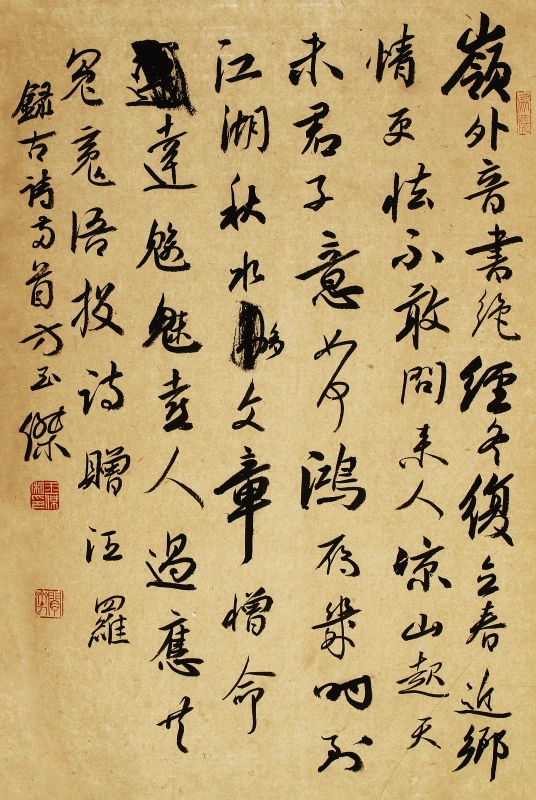 嶺外音書絶經冬復立春近鄉
情更怯不敢問來人凉山起天
末君子意如何鴻雁幾時到
江湖秋水文章憎命
達魑魅喜人過應共
冤魂語投詩贈汨羅
録古詩両首方玉傑